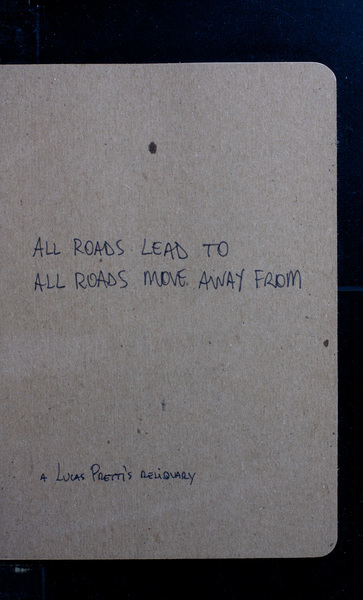 ALL ROADS LEAD TO
ALL ROADS MOVE AWAY FROM
A LUCAS PRETTI'S RELIQUARY